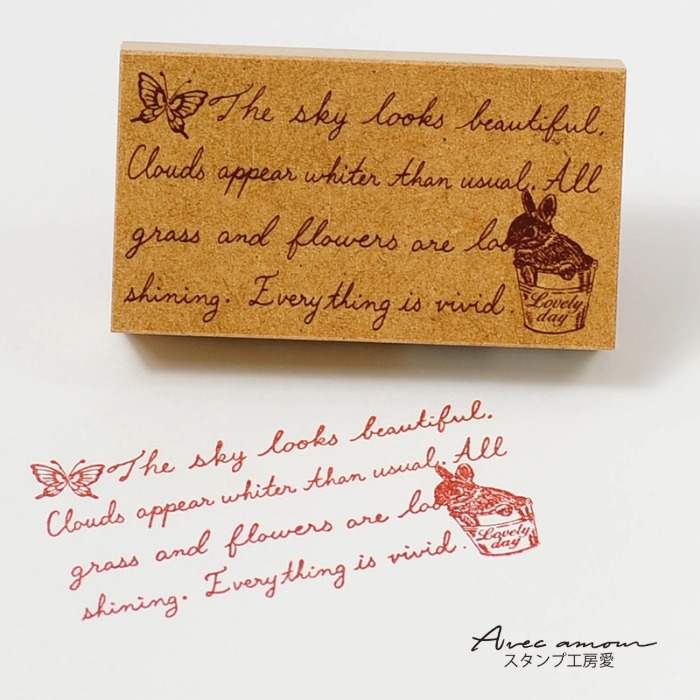 The sky looks beautiful.
Clouds appear whiter than usual. All
grass and flowers are
shining. Everything is vivid.
Lovely
day
The sky looks beautiful.
Clouds appear whiter than usual. All
grass and flowers are
shining. Everything is vivid.
Lovely
day
Avec amour
スタンプ工房愛